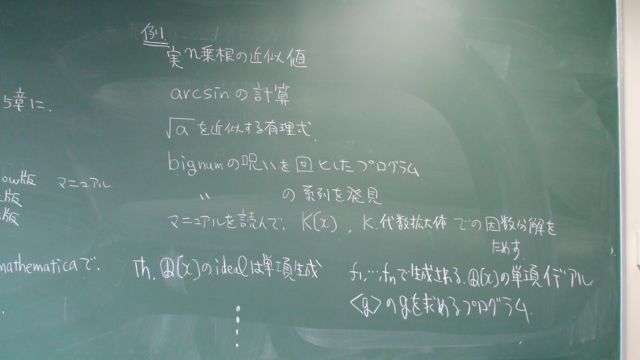 例1.
実n乗根の近似値
arcsinの計算
√a を近似する有理式.
5章に.
bignumの呪いを回としたプログラム
〃 の系列を発見
ow版 マニュアル
版
版
マニュアルを読んで, K(x), K:代数拡大体 での因数分解を
ためす.
mathematicaで.
Th. Q(x)のidealは単項生成
f1,…fnで生成される Q(x)の単項イデアル
<g>のgを求めるプログラム.